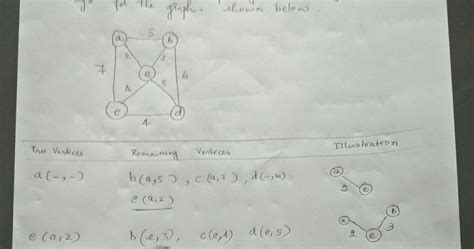 for the graph shown below.
a 5 b
2 3
7 e 6
4 5
c 4 d
Tree Vertices Remaining Vertices Illustration
a(-,-) b(a,5), c(a,7), d(-,∞)
e(a,2)
a
2 e
e(a,2) b(e,3), c(e,4) d(e,5)
a b
2 e 3